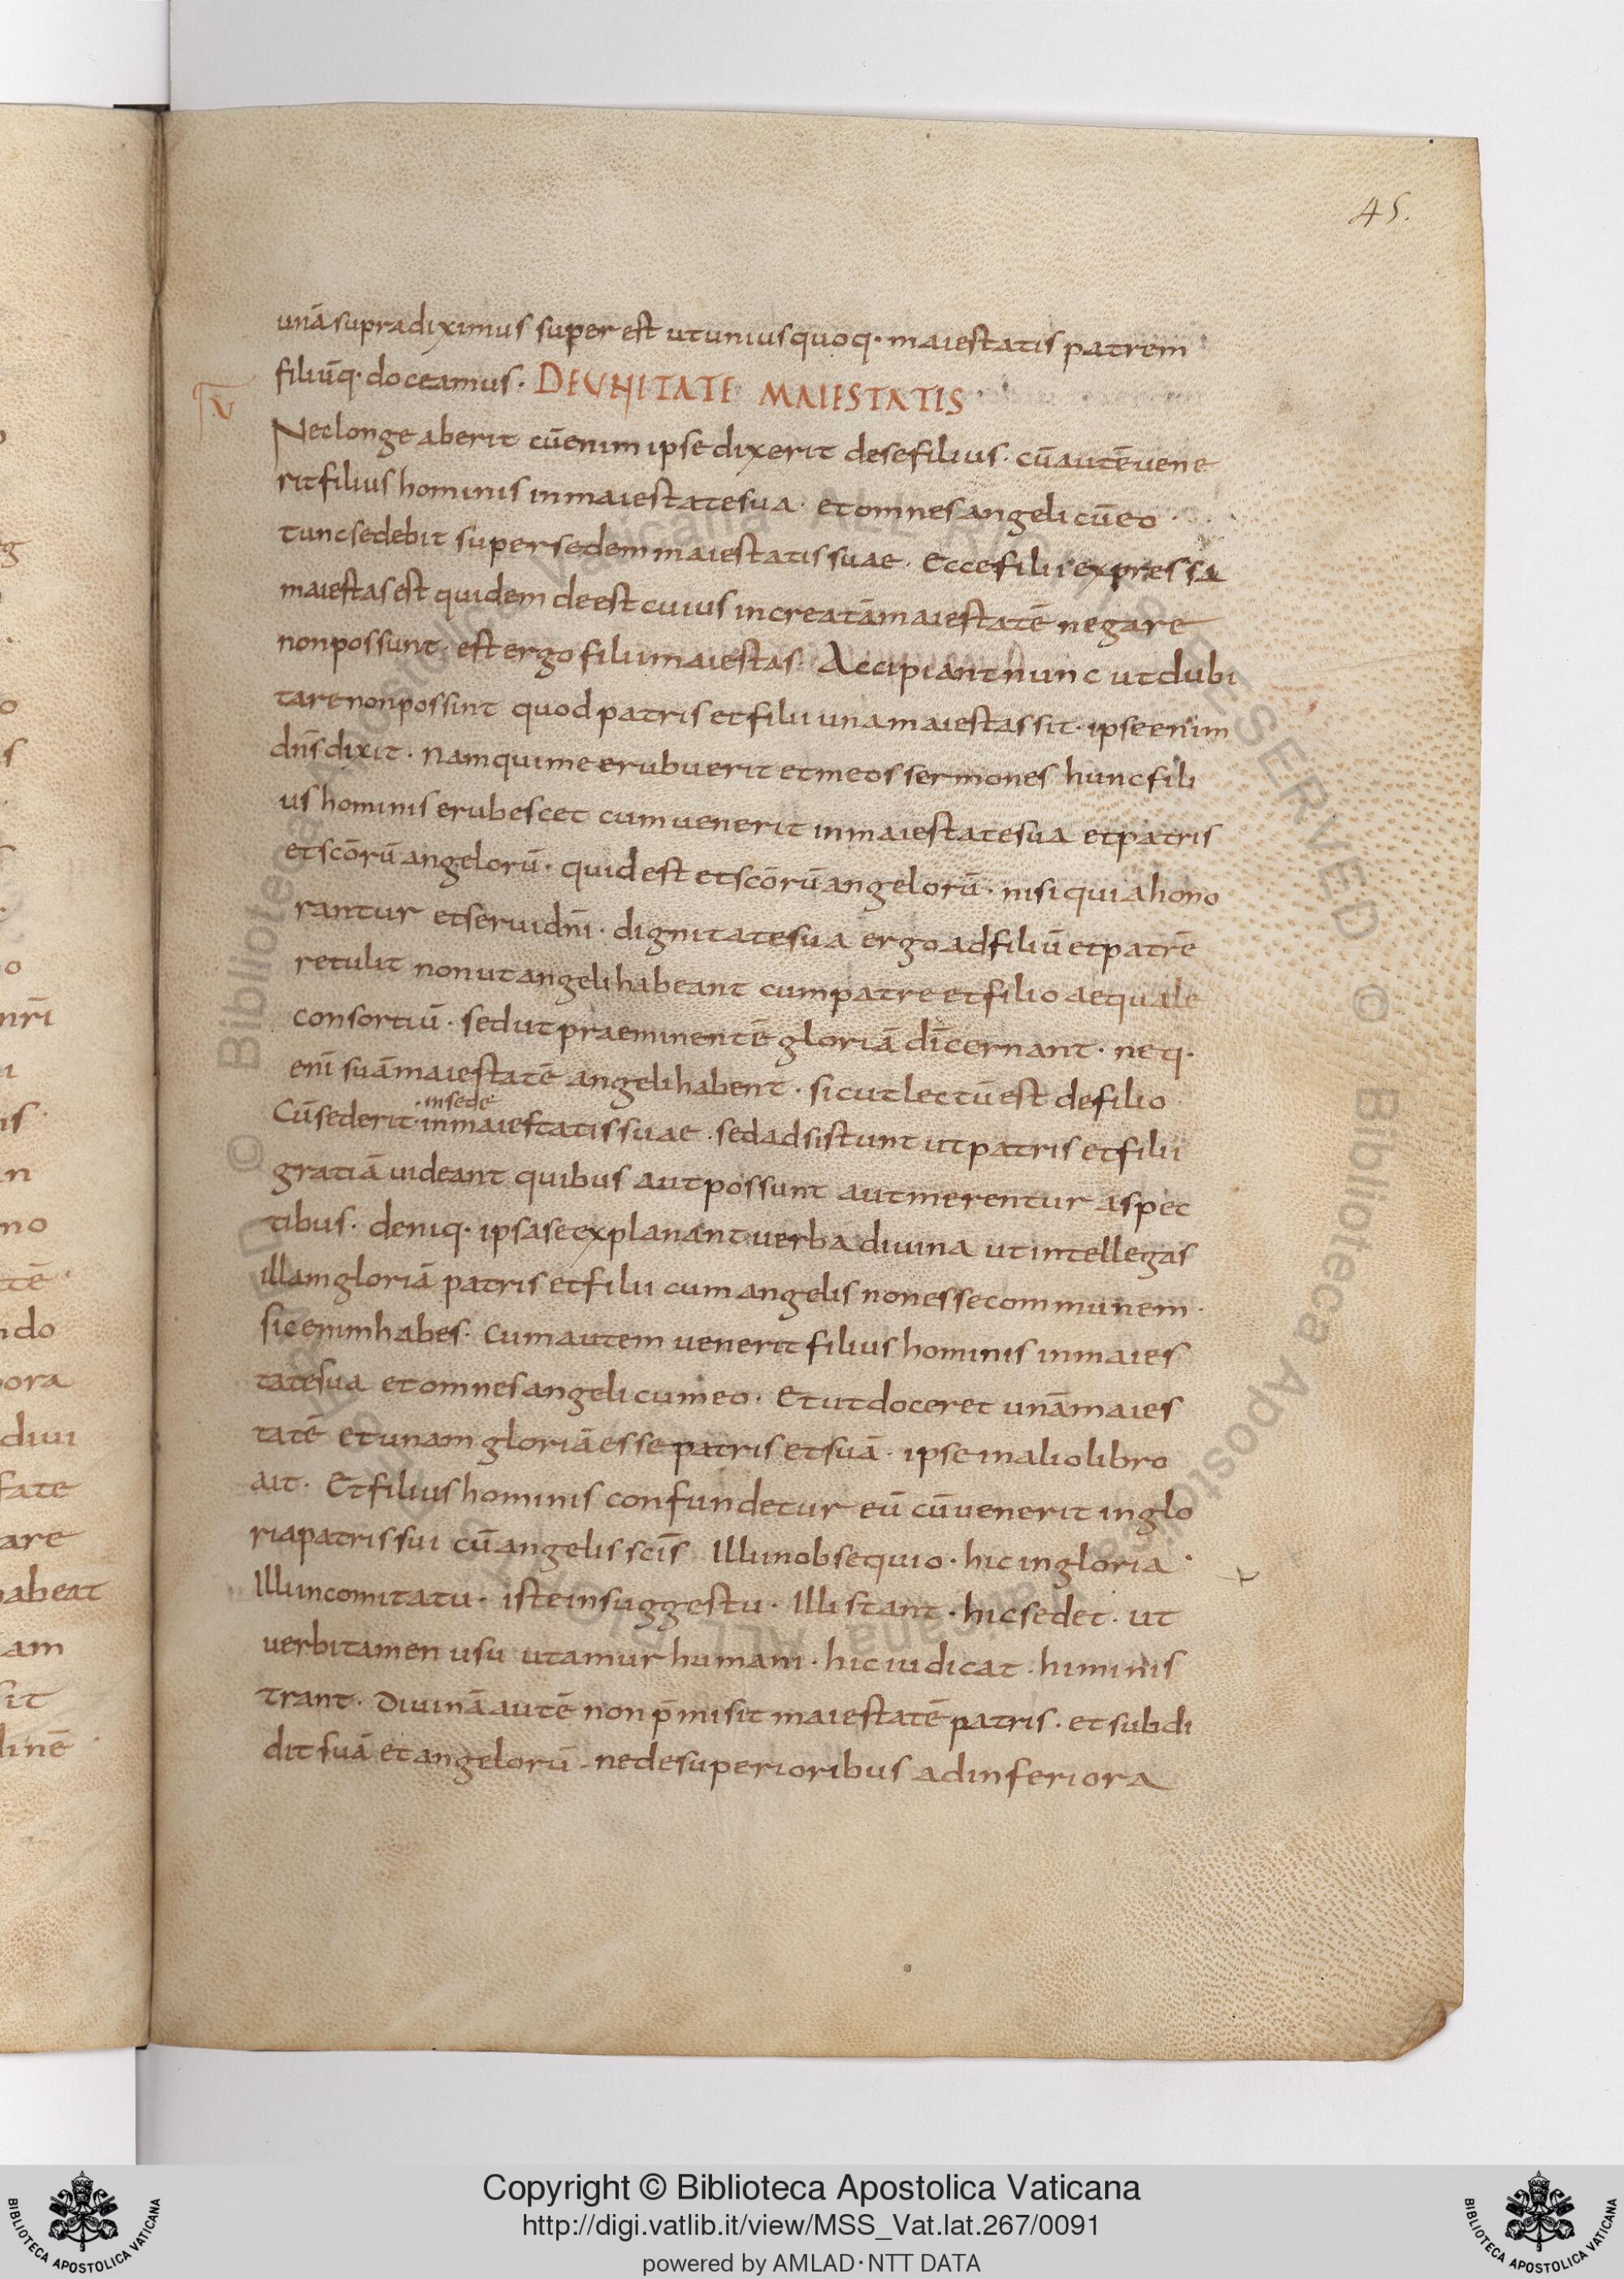 45.
unā supradiximus superest ut unius quoq· maiestatis patrem
filiūq· doceamus · DE UNITATE MAIESTATIS
Nec longe aberit cū enim ipse dixerit de se filius · cū autē uene
rit filius hominis in maiestate sua · et omnes angeli cū eo ·
tunc sedebit super sedem maiestatis suae · Ecce filii expressa
maiestas est quidem deest cuius increatā maiestatē negare
non possunt · est ergo filii maiestas · Accipiant nunc ut dubi
tare non possint quod patris et filii una maiestas sit · ipse enim
dn̄s dixit · Nam qui me erubuerit et meos sermones hunc fili
us hominis erubescet cum uenerit in maiestate sua et patris
et sc̄orū angelorū · quid est et sc̄orū angelorū · nisi quia hono
rantur et serui dn̄i · dignitate sua ergo ad filiū et patrē
retulit non ut angeli habeant cum patre et filio aequale
consortiū · sed ut praeminentē gloriā dīcernant · neq·
enī suā maiestatē angeli habent · sicut lectū est de filio
in sede
Cū sederit · in maiestatis suae · sed adsistunt ut patris et filii
gratiā uideant quibus aut possunt aut merentur aspec
tibus · deniq· ipsa se explanant uerba diuina ut intellegas
illam gloriā patris et filii cum angelis non esse communem ·
sic enim habes · Cum autem uenerit filius hominis in maies
tate sua et omnes angeli cum eo · Et ut doceret unā maies
tatē et unam gloriā esse patris et suā · ipse in alio libro
ait · Et filius hominis confundetur eū cū uenerit in glo
ria patris sui cū angelis sc̄is Illi in obsequio · hic in gloria ·
Illi in comitatu · iste in suggestu · Illi stant · hic sedet · ut
uerbi tamen usu utamur humani · hic iudicat · hi minis
trant · Diuinā autē non p̄misit maiestatē patris · et subdi
dit suā et angelorū · ne de superioribus ad inferiora
Copyright © Biblioteca Apostolica Vaticana
http://digi.vatlib.it/view/MSS_Vat.lat.267/0091
powered by AMLAD·NTT DATA